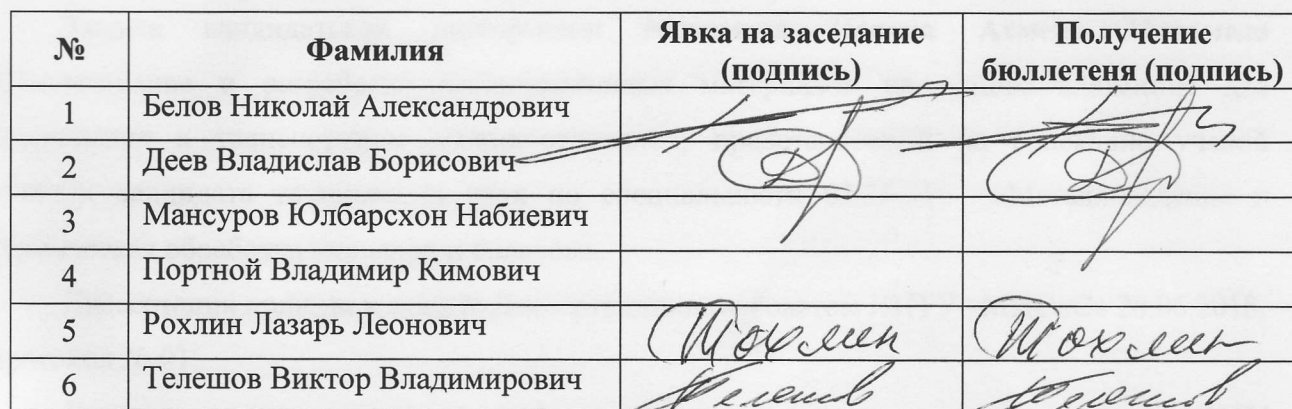 № Фамилия Явка на заседание (подпись) Получение бюллетеня (подпись)
1 Белов Николай Александрович
2 Деев Владислав Борисович
3 Мансуров Юлбарсхон Набиевич
4 Портной Владимир Кимович
5 Рохлин Лазарь Леонович
6 Телешов Виктор Владимирович Телешов Телешов